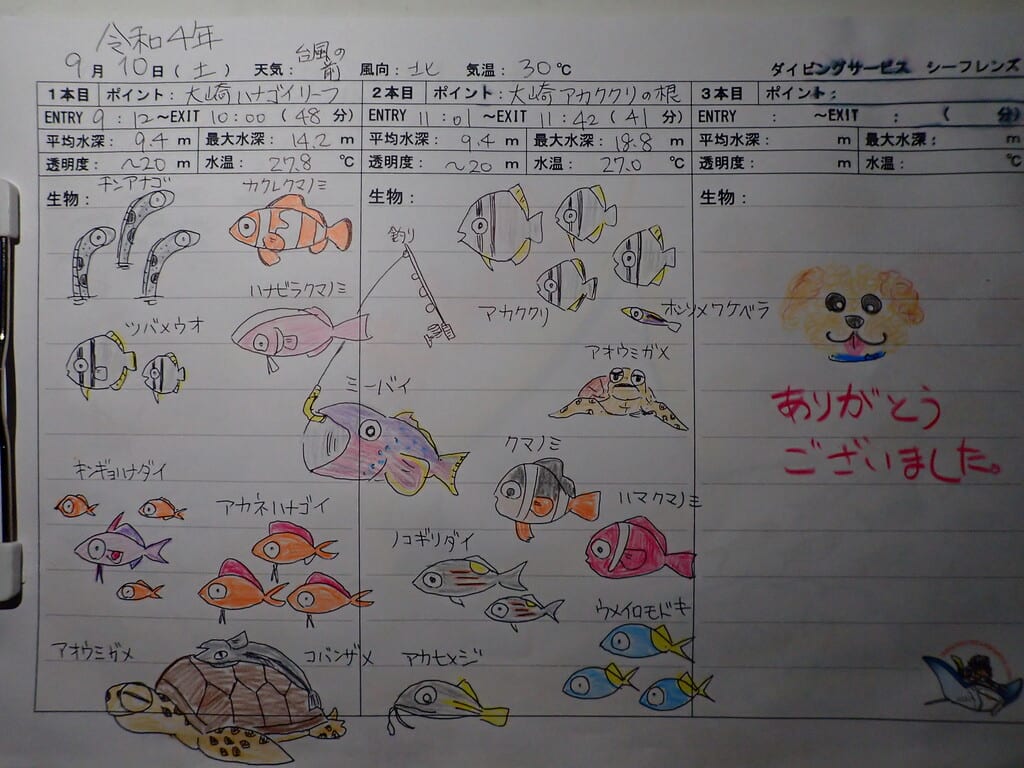 令和4年
9月10日(土) 天気: 台風の前 風向: 北 気温: 30℃ ダイビングサービス シーフレンズ
1本目 ポイント: 大崎ハナゴイリーフ
ENTRY 9:12～EXIT 10:00(48分)
平均水深: 9.4m 最大水深: 14.2m
透明度: ～20m 水温: 27.8℃
生物:
チンアナゴ
カクレクマノミ
ハナビラクマノミ
ツバメウオ
キンギョハナダイ
アカネハナゴイ
アオウミガメ
コバンザメ
2本目 ポイント: 大崎アカククリの根
ENTRY 11:01～EXIT 11:42(41分)
平均水深: 9.4m 最大水深: 18.8m
透明度: ～20m 水温: 27.0℃
生物:
釣り
アカククリ
ホソツメワケベラ
アオウミガメ
ミーバイ
クマノミ
ハマクマノミ
ノコギリダイ
ウメイロモドキ
アカヒメジ
3本目 ポイント:
ENTRY : ～EXIT : ( 分)
平均水深: m 最大水深: m
透明度: m 水温: ℃
生物:
ありがとう
ございました。